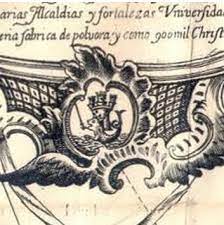 arias Alcaldias y fortalezas Vniversida
eria fabrica de polvora y como 900 mil Christ